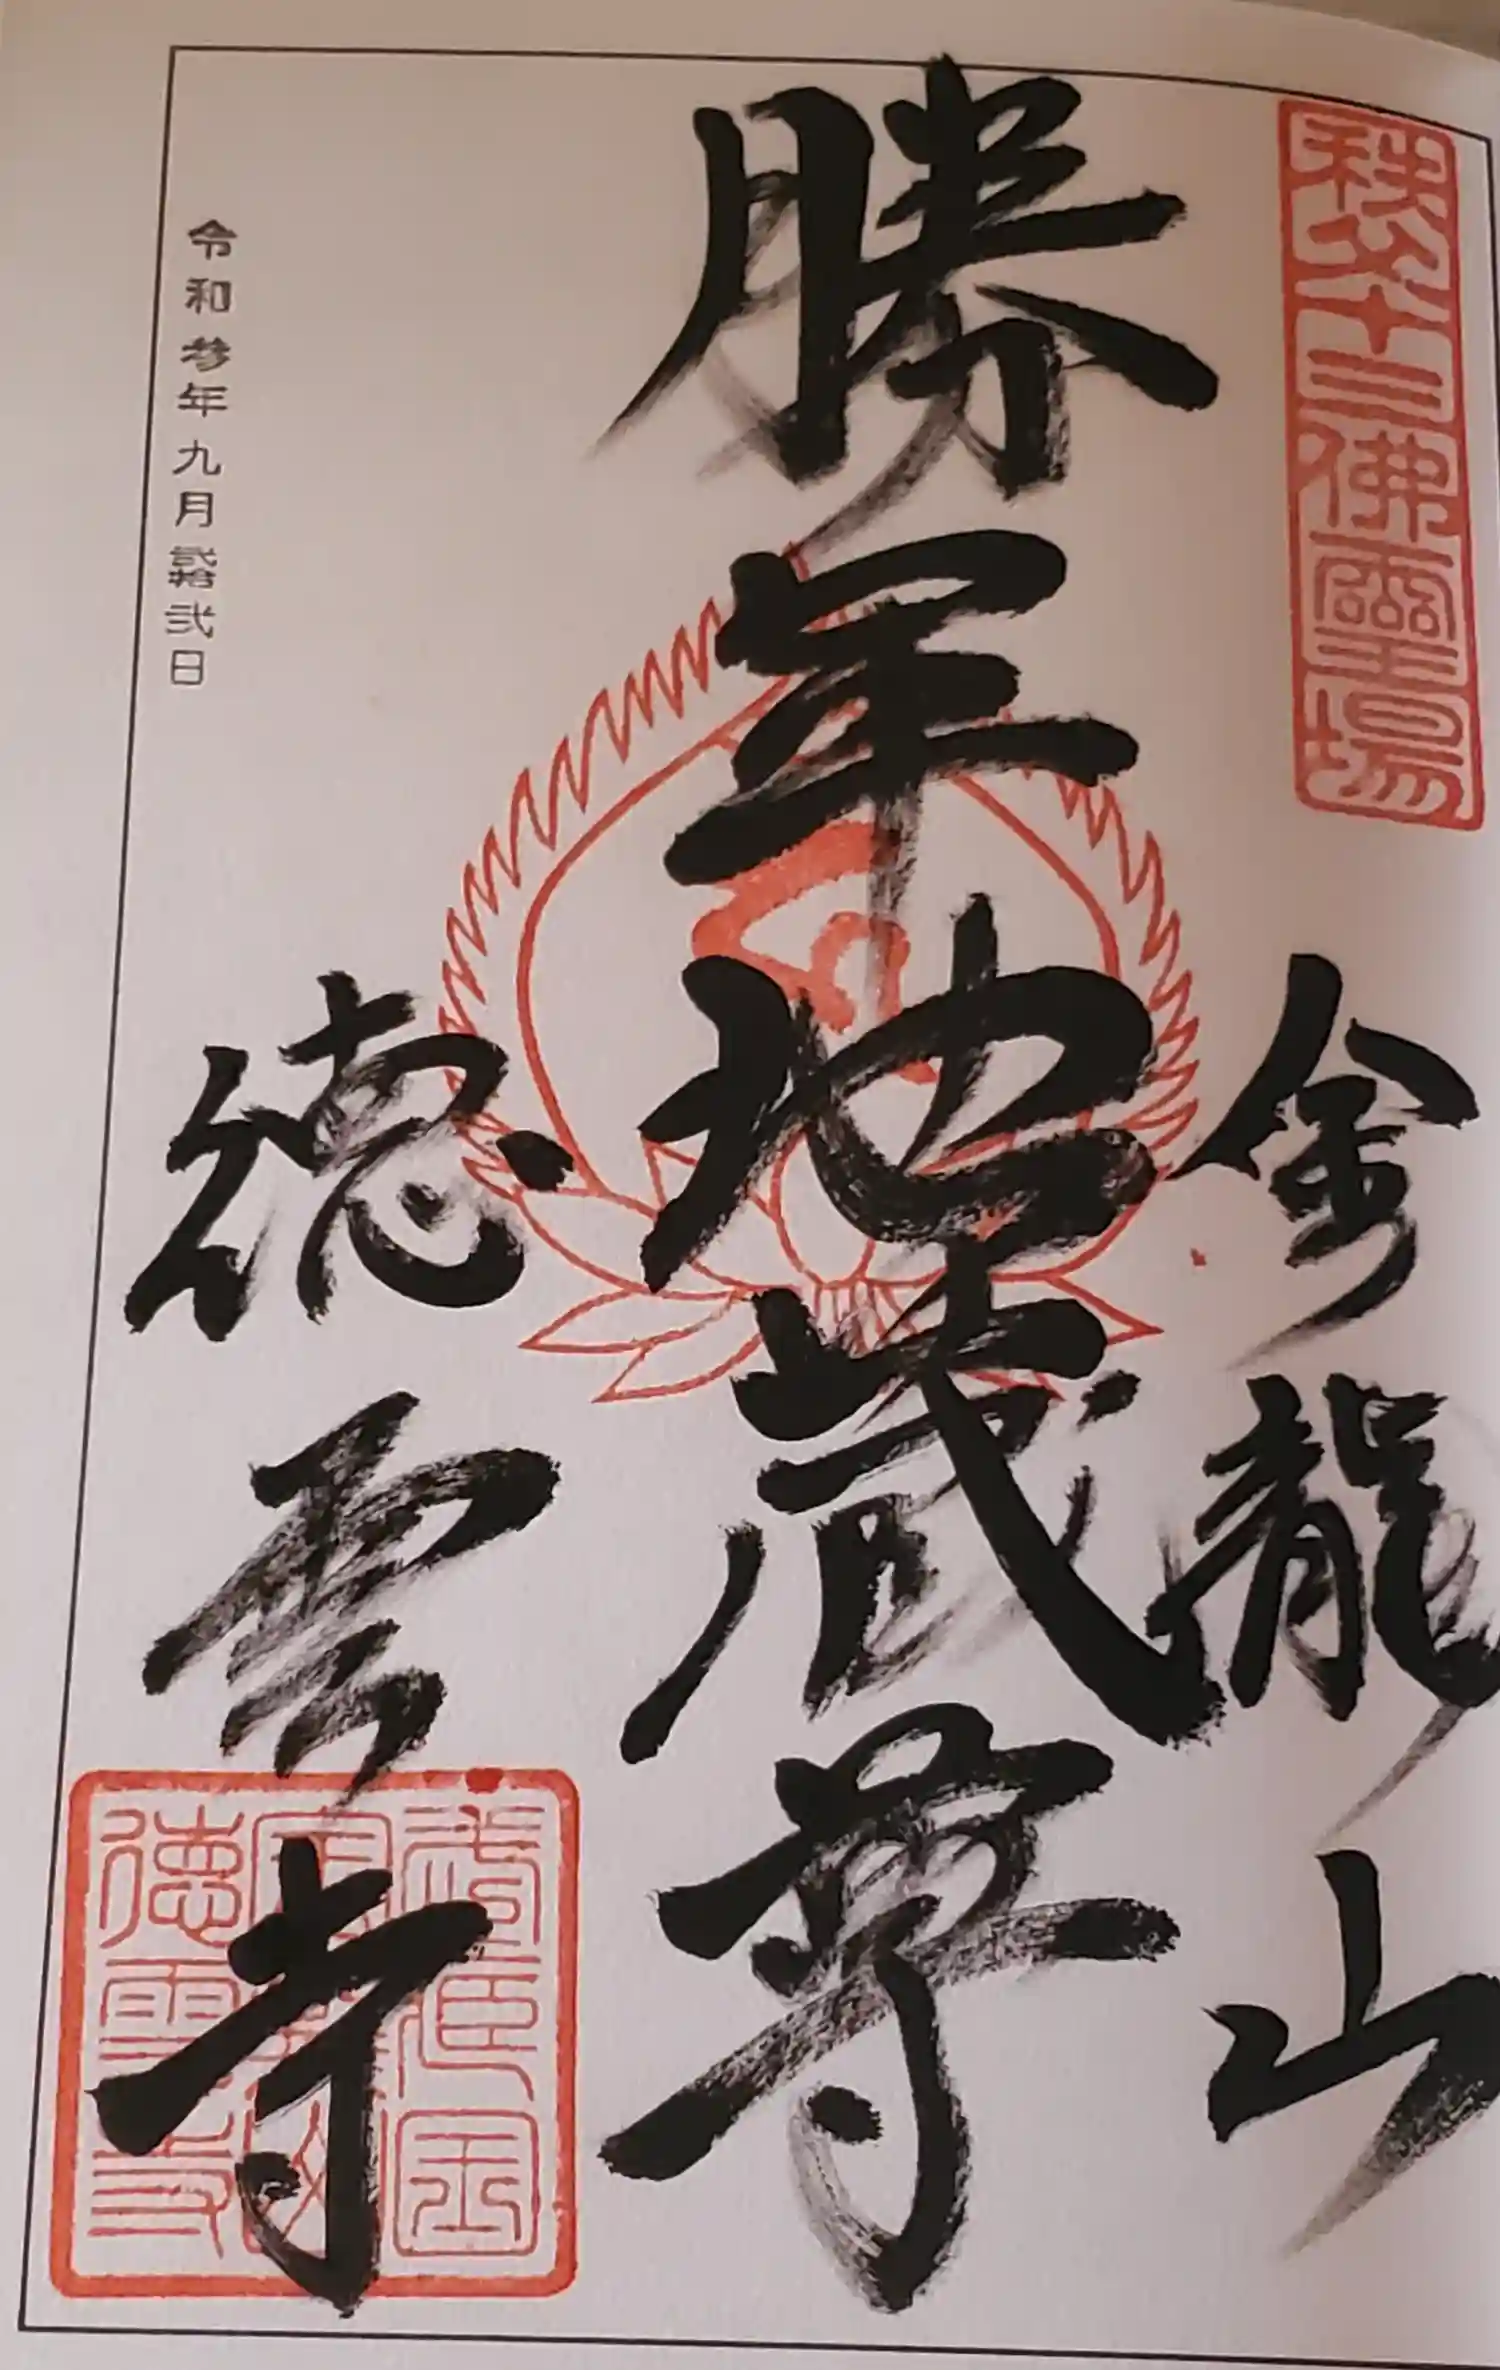 秩父十三佛靈場
金龍山
勝軍地蔵尊
徳雲寺
徳雲寺
令和参年九月弐拾弐日